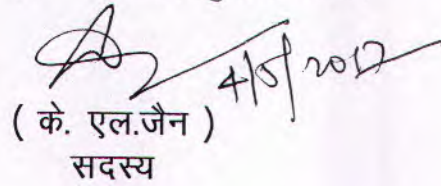 4/5/2017
( के. एल.जैन )
सदस्य